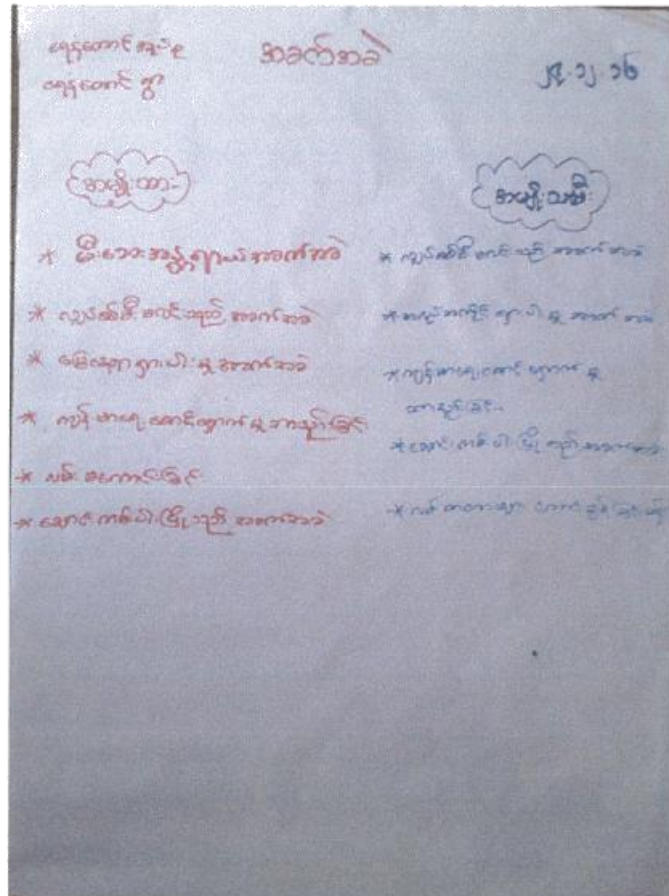 ရေနံတောင် အုပ်စု
ရေနံတောင် ရွာ
အခက်အခဲ
၂၄.၁၂.၁၆
အမျိုးသား
* မီးဘေးအန္တရာယ်အခက်အခဲ
* လျှပ်စစ်မီး မလင်းသည် အခက်အခဲ
* မြေနေရာ ရှားပါးမှု အခက်အခဲ
* ကျန်းမာရေး စောင့်ရှောက်မှု အားနည်းခြင်း
* လမ်း မကောင်းခြင်း
* ချောင်းကမ်းပါးပြိုသည် အခက်အခဲ
အမျိုးသမီး
* လျှပ်စစ်မီး မလင်းသည် အခက်အခဲ
* အလုပ်အကိုင် ရှားပါးမှု အခက်အခဲ
* ကျန်းမာရေးစောင့်ရှောက်မှု
အားနည်းခြင်း
* ချောင်းကမ်းပါးပြိုသည် အခက်အခဲ
* လမ်း